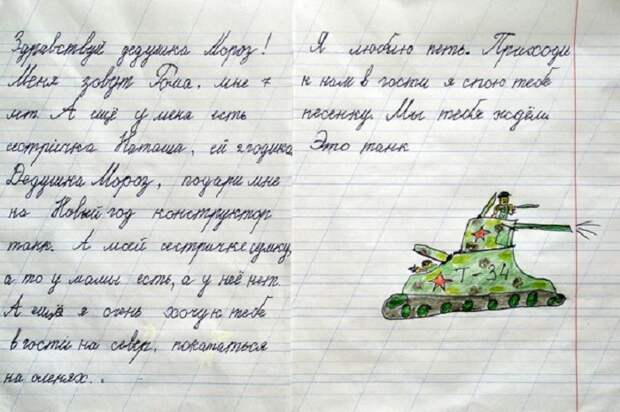 Здравствуй дедушка Мороз!
Меня зовут Рома, мне 7
лет. А ещё у меня есть
сестричка Наташа, ей 2 годика
Дедушка Мороз, подари мне
на Новый год конструктор
танк. А моей сестричке сумку,
а то у мамы есть, а у неё нет.
А ещё я очень хочу к тебе
в гости на север, покататься
на оленях..
Я люблю петь. Приходи
к нам в гости я спою тебе
песенку. Мы тебя ждём.
Это танк
Т 34